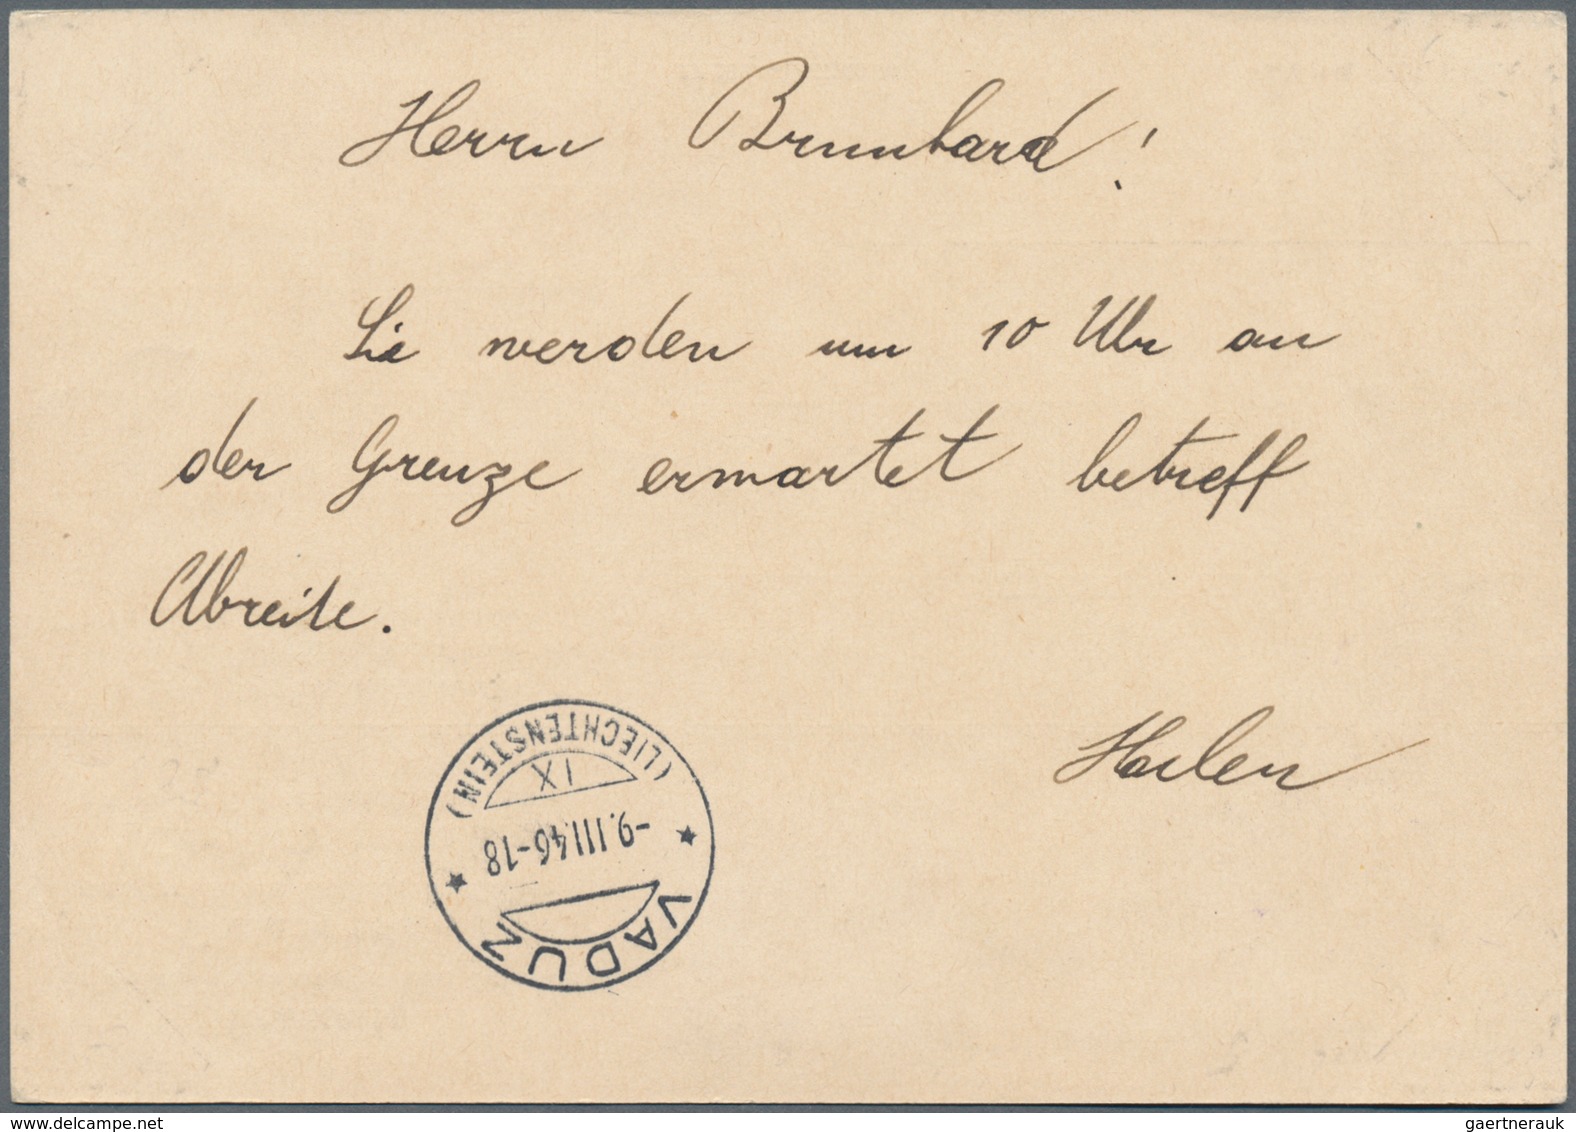 Herrn Brunhard!
Sie werden um 10 Uhr an
der Grenze erwartet betreff
Abreise.
(LIECHTENSTEIN)
IX
-9.III.46-18
VADUZ
delcampe.net
gaertnerauk